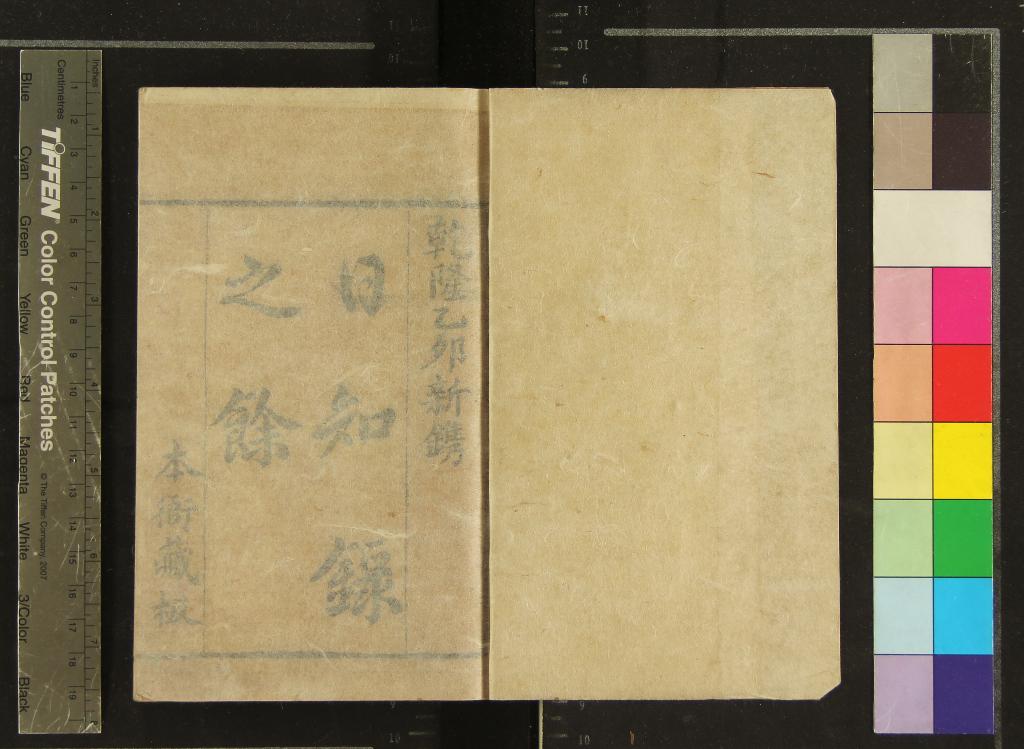 乾隆乙卯新鐫
日知錄
之餘
本衙藏板
Inches
Centimetres
TIFFEN Color Control Patches
© The Tiffen Company, 2007
Blue Cyan Green Yellow Red Magenta White 3/Color Black
1 2 3 4 5 6 7 8 9 10 11 12 13 14 15 16 17 18 19
1 2 3 4 5 6 7 8
11
10
9
11
10
9
10
10